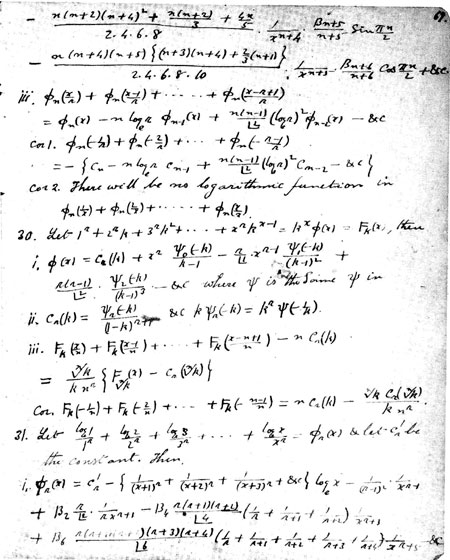 69.
n(n+2)(n+4)² + n(n+2)/3 + 4n/5 / 2.4.6.8 · 1/x^{n+4} · B_{n+5}/(n+5) Sin πn/2
− n(n+4)(n+5){(n+3)(n+4) + 2/3(n+1)} / 2.4.6.8.10 · 1/x^{n+5} · B_{n+6}/(n+6) Cos πn/2 + &c.
iii. φ_n(x/n) + φ_n((x-1)/n) + ····· + φ_n((x-n+1)/n)
= φ_n(x) − n log_e n φ_{n-1}(x) + n(n-1)/⌊2 (log_e n)² φ_{n-2}(x) − &c
Cor 1. φ_n(-1/n) + φ_n(-2/n) + ··· + φ_n(-(n-1)/n)
= − { C_n − n log_e n C_{n-1} + n(n-1)/⌊2 (log_e n)² C_{n-2} − &c }
Cor 2. There will be no logarithmic function in
φ_n(1/n) + φ_n(2/n) + ····· + φ_n(n/n).
30. Let 1^n + 2^n k + 3^n k² + ···· + x^n k^{x-1} = k^x φ(x) = F_k(x), then
i. φ(x) = C_n(k) + x^n ψ_0(-k)/(k-1) − n/⌊1 x^{n-1} ψ_1(-k)/(k-1)² +
n(n-1)/⌊2 ψ_2(-k)/(k-1)³ − &c where ψ is the same ψ in
ii. C_n(k) = ψ_n(-k)/(1-k)^{n+1} &c k ψ_n(-k) = k^n ψ(-1/k).
iii. F_k(x/n) + F_k((x-1)/n) + ···· + F_k((x-n+1)/n) − n C_n(k)
= ⁿ√k/(k n^n) { F_{ⁿ√k}(x) − C_n(ⁿ√k) }
Cor. F_k(-1/n) + F_k(-2/n) + ···· + F_k(-(n-1)/n) = n C_n(k) − ⁿ√k C_n(ⁿ√k)/(k n^n).
31. Let log 1/1^n + log 2/2^n + log 3/3^n + ···· + log x/x^n = φ_n(x) & let C'_n be
the constant. Then
i. φ_n(x) = C'_n − { 1/(x+1)^n + 1/(x+2)^n + 1/(x+3)^n + &c } log_e x − 1/(n-1)² · 1/x^{n-1}
+ B_2 n/⌊2 · 1/n x^{n+1} − B_4 n(n+1)(n+2)/⌊4 (1/n + 1/(n+1) + 1/(n+2)) 1/x^{n+3}
+ B_6 n(n+1)(n+2)(n+3)(n+4)/⌊6 (1/n + 1/(n+1) + 1/(n+2) + 1/(n+3) + 1/(n+4)) 1/x^{n+5} − &c